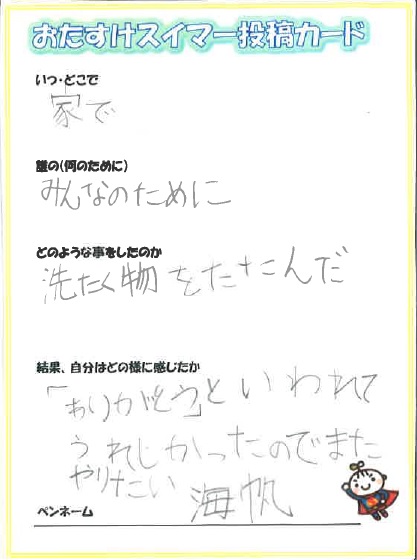 おたすけスイマー投稿カード
いつ・どこで
家で
誰の(何のために)
みんなのために
どのような事をしたのか
洗たく物をたたんだ
結果、自分はどの様に感じたか
「ありがとう」といわれて
うれしかったのでまた
やりたい 海帆
ペンネーム